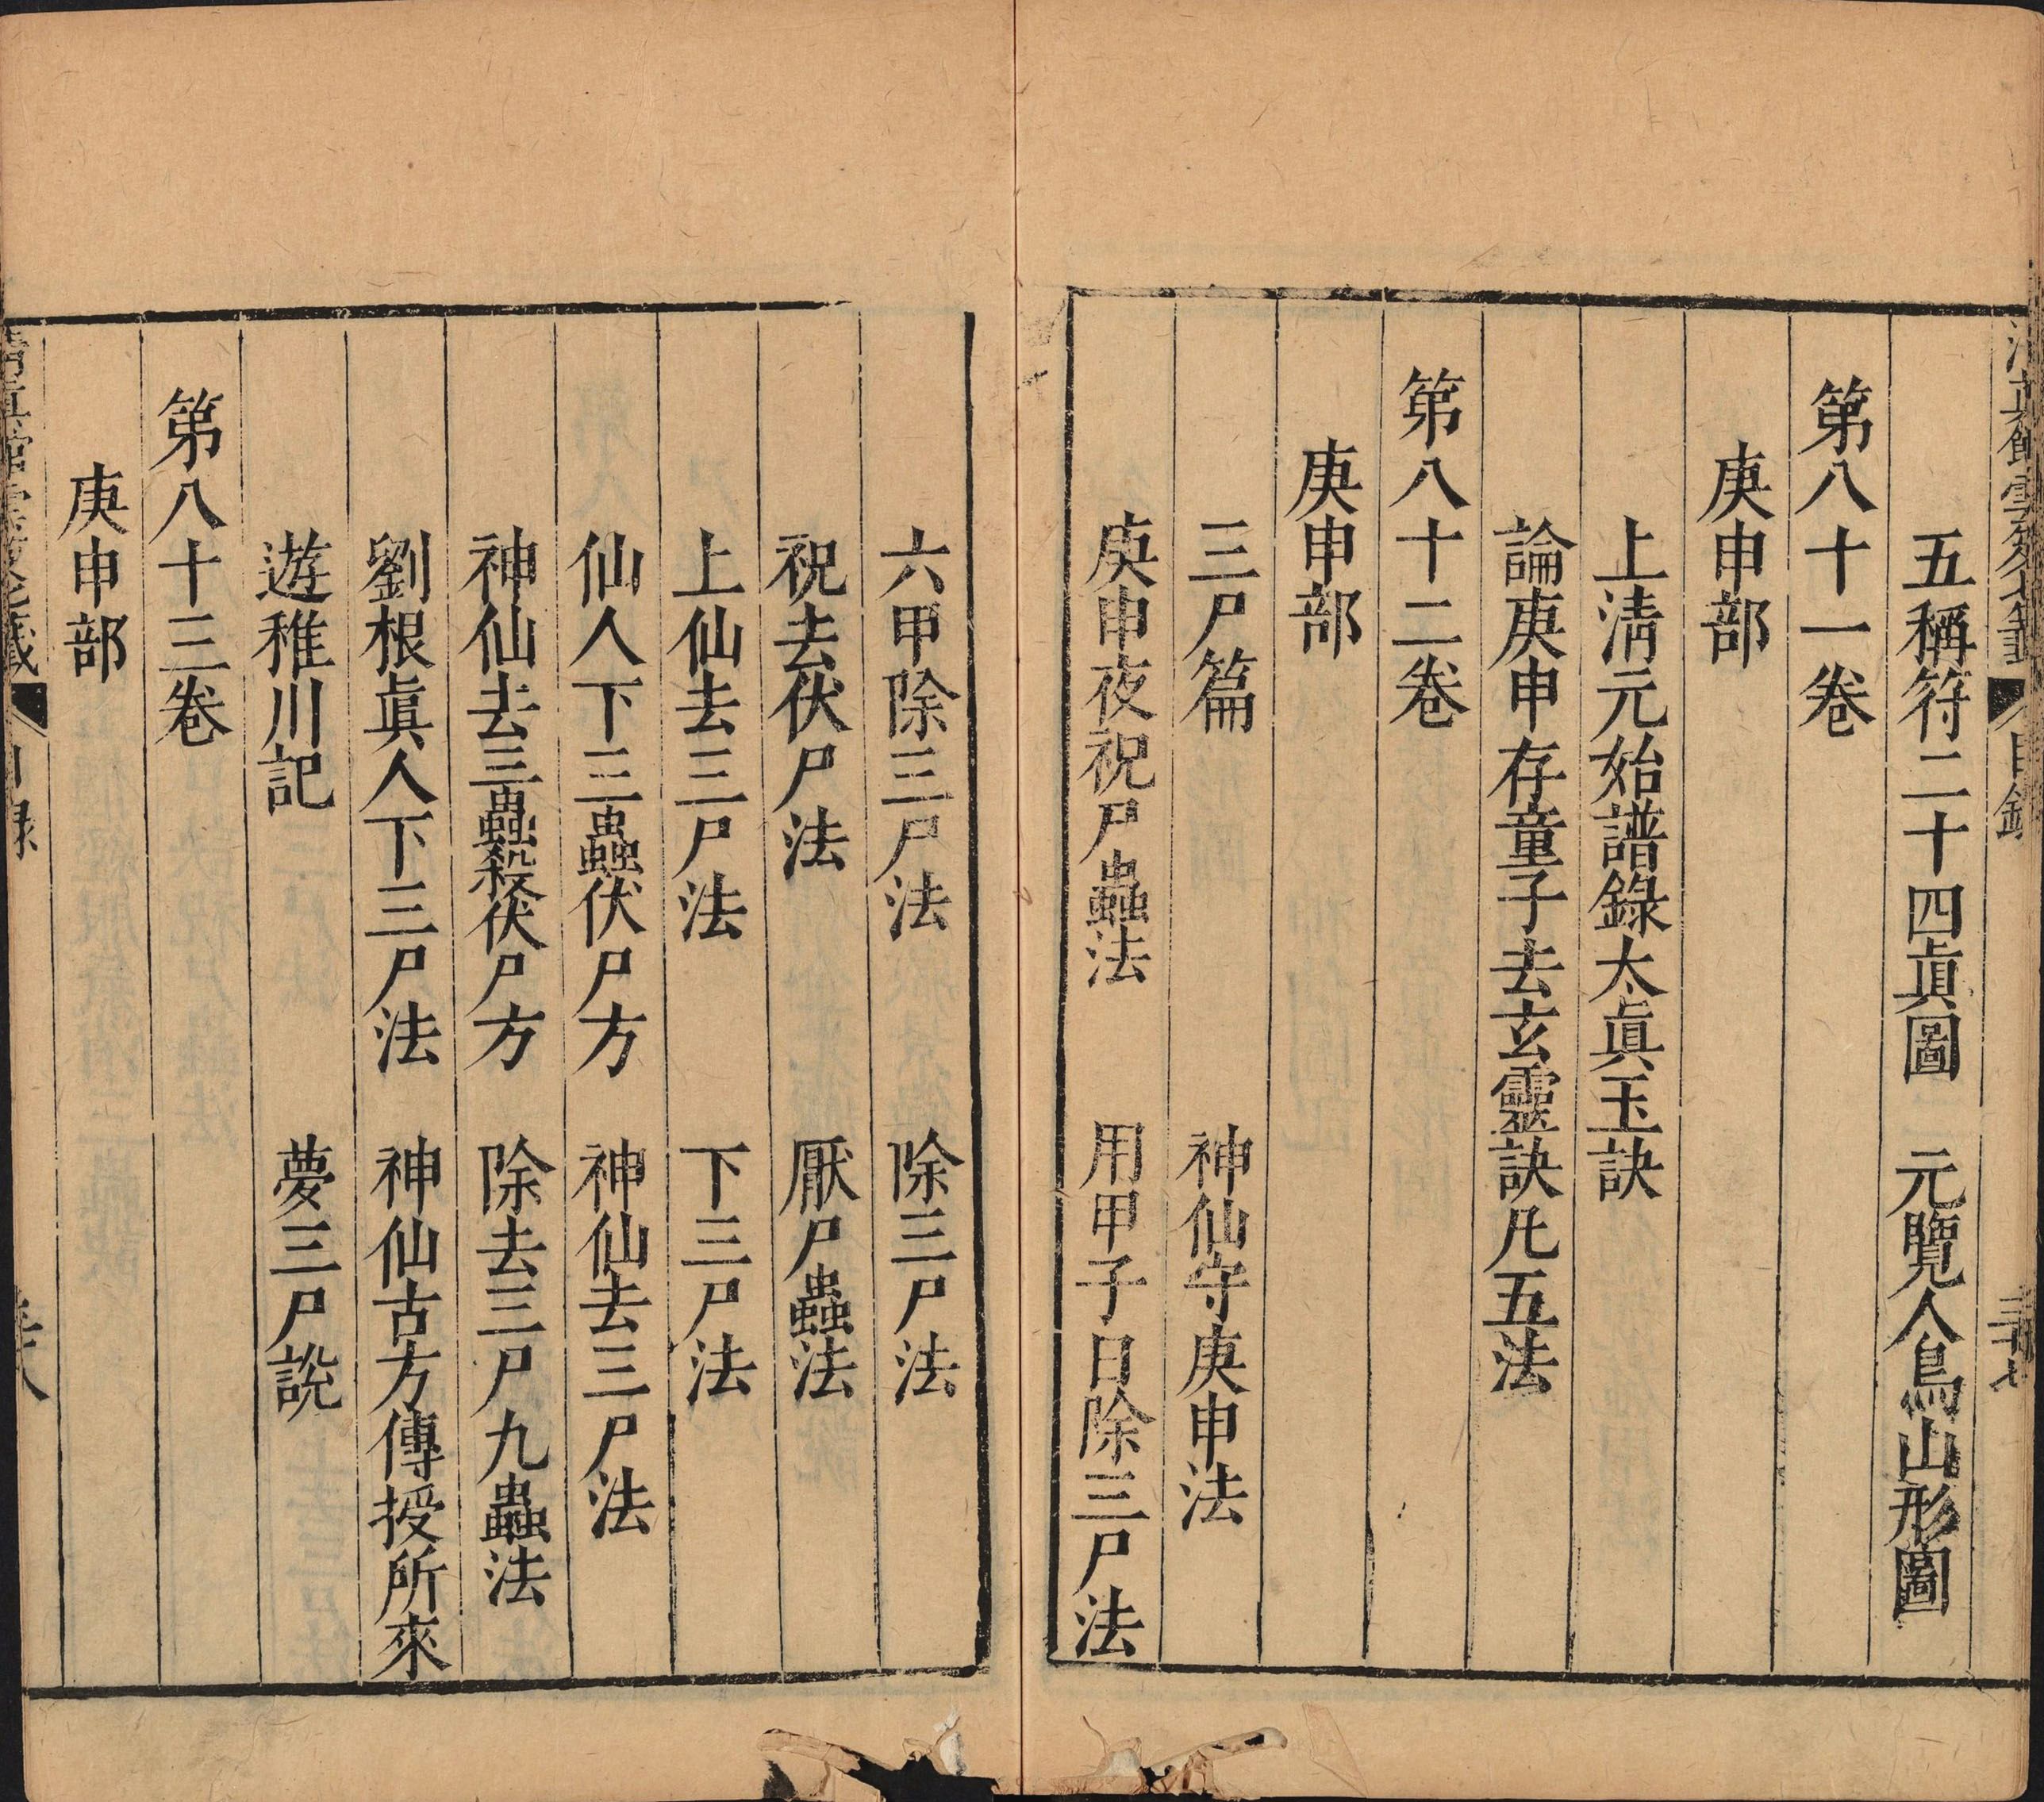 五稱符二十四眞圖　元覽人鳥山形圖
第八十一卷
庚申部
上淸元始譜錄太眞玉訣
論庚申存童子去玄靈訣凡五法
第八十二卷
庚申部
三尸篇　神仙守庚申法
庚申夜祝尸蟲法　用甲子日除三尸法
六甲除三尸法　除三尸法
祝去伏尸法　厭尸蟲法
上仙去三尸法　下三尸法
仙人下三蟲伏尸方　神仙去三尸法
神仙去三蟲殺伏尸方　除去三尸九蟲法
劉根眞人下三尸法　神仙古方傳授所來
遊稚川記　夢三尸說
第八十三卷
庚申部
目錄